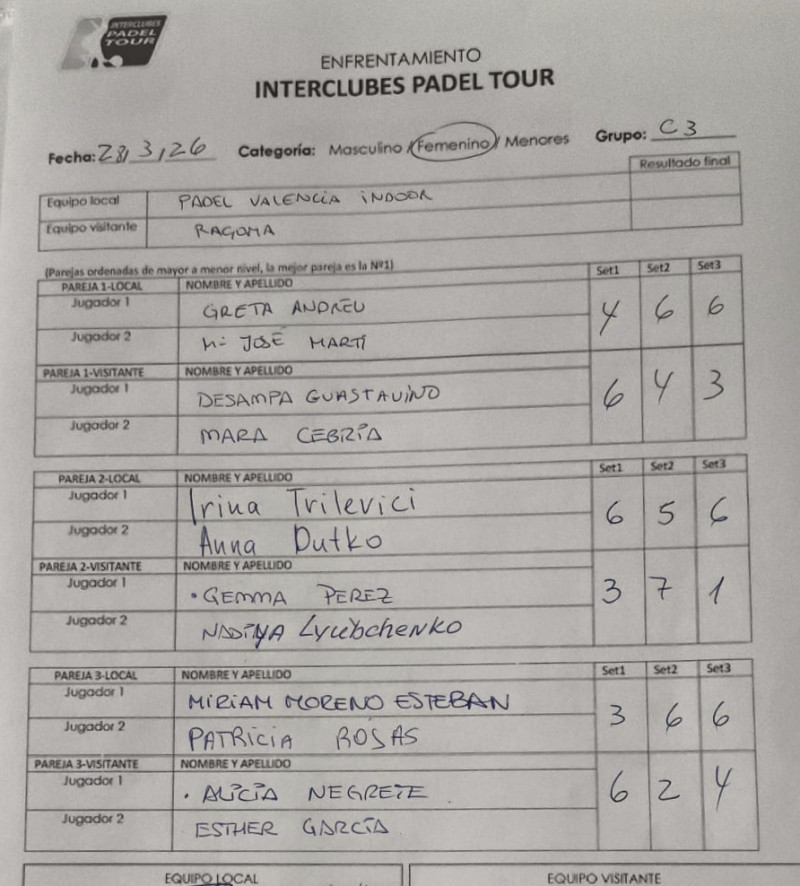 INTERCLUBES
PADEL
TOUR
ENFRENTAMIENTO
INTERCLUBES PADEL TOUR
Fecha: 28/3/26 Categoría: Masculino / Femenino / Menores Grupo: C3
Resultado final
Equipo local PADEL VALENCIA INDOOR
Equipo visitante RAGOMA
(Parejas ordenadas de mayor a menor nivel, la mejor pareja es la Nº1) Set1 Set2 Set3
PAREJA 1-LOCAL NOMBRE Y APELLIDO
Jugador 1 GRETA ANDREU 4 6 6
Jugador 2 Mª JOSÉ MARTÍ
PAREJA 1-VISITANTE NOMBRE Y APELLIDO
Jugador 1 DESAMPA GUASTAVINO 6 4 3
Jugador 2 MARA CEBRIÀ
PAREJA 2-LOCAL NOMBRE Y APELLIDO Set1 Set2 Set3
Jugador 1 Irina Trilevici 6 5 6
Jugador 2 Anna Dutko
PAREJA 2-VISITANTE NOMBRE Y APELLIDO
Jugador 1 · GEMMA PEREZ 3 7 1
Jugador 2 NADIYA Lyubchenko
PAREJA 3-LOCAL NOMBRE Y APELLIDO Set1 Set2 Set3
Jugador 1 MIRIAM MORENO ESTEBAN 3 6 6
Jugador 2 PATRICIA ROSAS
PAREJA 3-VISITANTE NOMBRE Y APELLIDO
Jugador 1 · ALICIA NEGRETE 6 2 4
Jugador 2 ESTHER GARCÍA
EQUIPO LOCAL EQUIPO VISITANTE